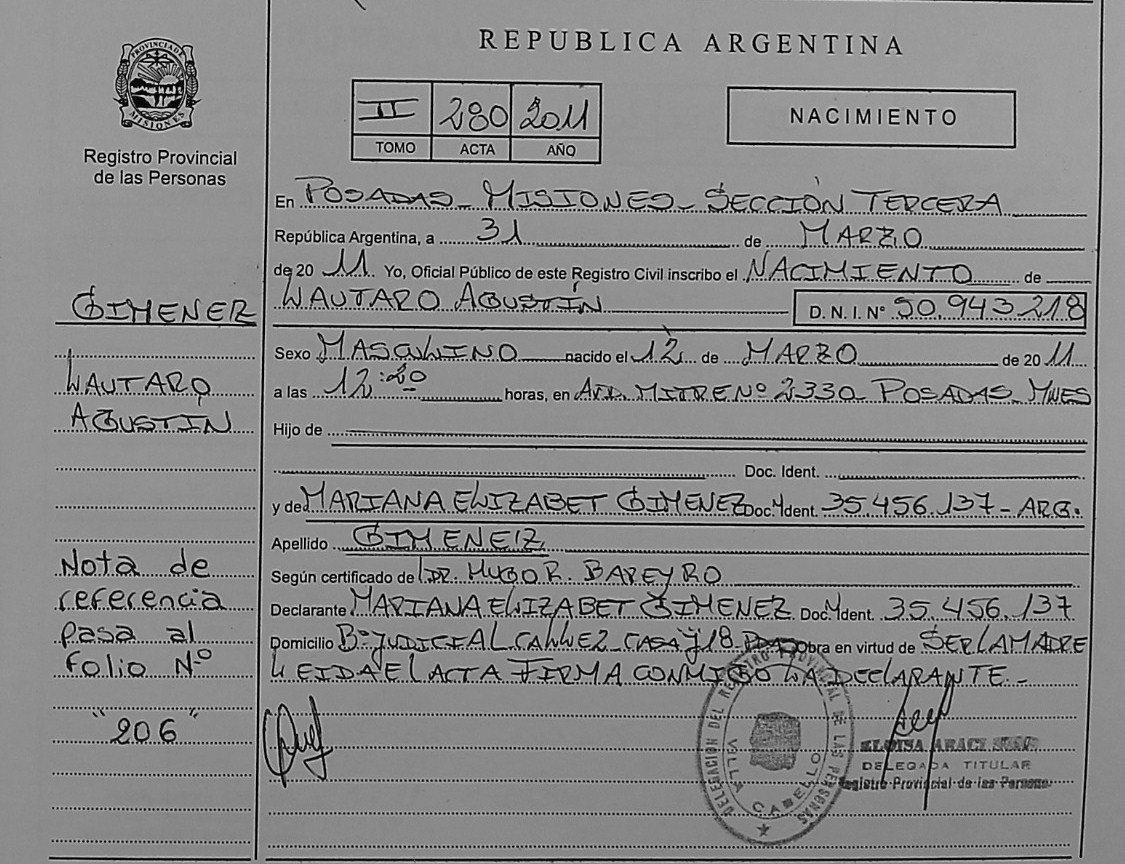 REPUBLICA ARGENTINA
PROVINCIA DE MISIONES
Registro Provincial
de las Personas
II 280 2011
TOMO ACTA AÑO
NACIMIENTO
En POSADAS - MISIONES - SECCIÓN TERCERA
República Argentina, a 31 de MARZO
de 2011 Yo, Oficial Público de este Registro Civil inscribo el NACIMIENTO de
LAUTARO AGUSTÍN D. N. I. Nº 50.943.218
GIMENEZ
Sexo MASCULINO nacido el 12 de MARZO de 2011
LAUTARO
a las 12:20 horas, en AVD. MITRE Nº 2330 - POSADAS - MNES
AGUSTIN
Hijo de
Doc. Ident.
y de MARIANA ELIZABET GIMENEZ Doc. Ident. 35.456.137 - ARG.
Apellido GIMENEZ
Según certificado de DR. HUGO R. BAREYRO
Declarante MARIANA ELIZABET GIMENEZ Doc. Ident. 35.456.137
Domicilio Bº JUDICIAL CALLE 2 CASA J18 Obra en virtud de SER LA MADRE
LEIDA EL ACTA FIRMA CONMIGO LA DECLARANTE -
Nota de
referencia
pasa al
folio Nº
"206"
DELEGACIÓN DEL REGISTRO PROVINCIAL DE LAS PERSONAS
VILLA CABELLO
ELOISA ARACI
DELEGADA TITULAR
Registro Provincial de las Personas